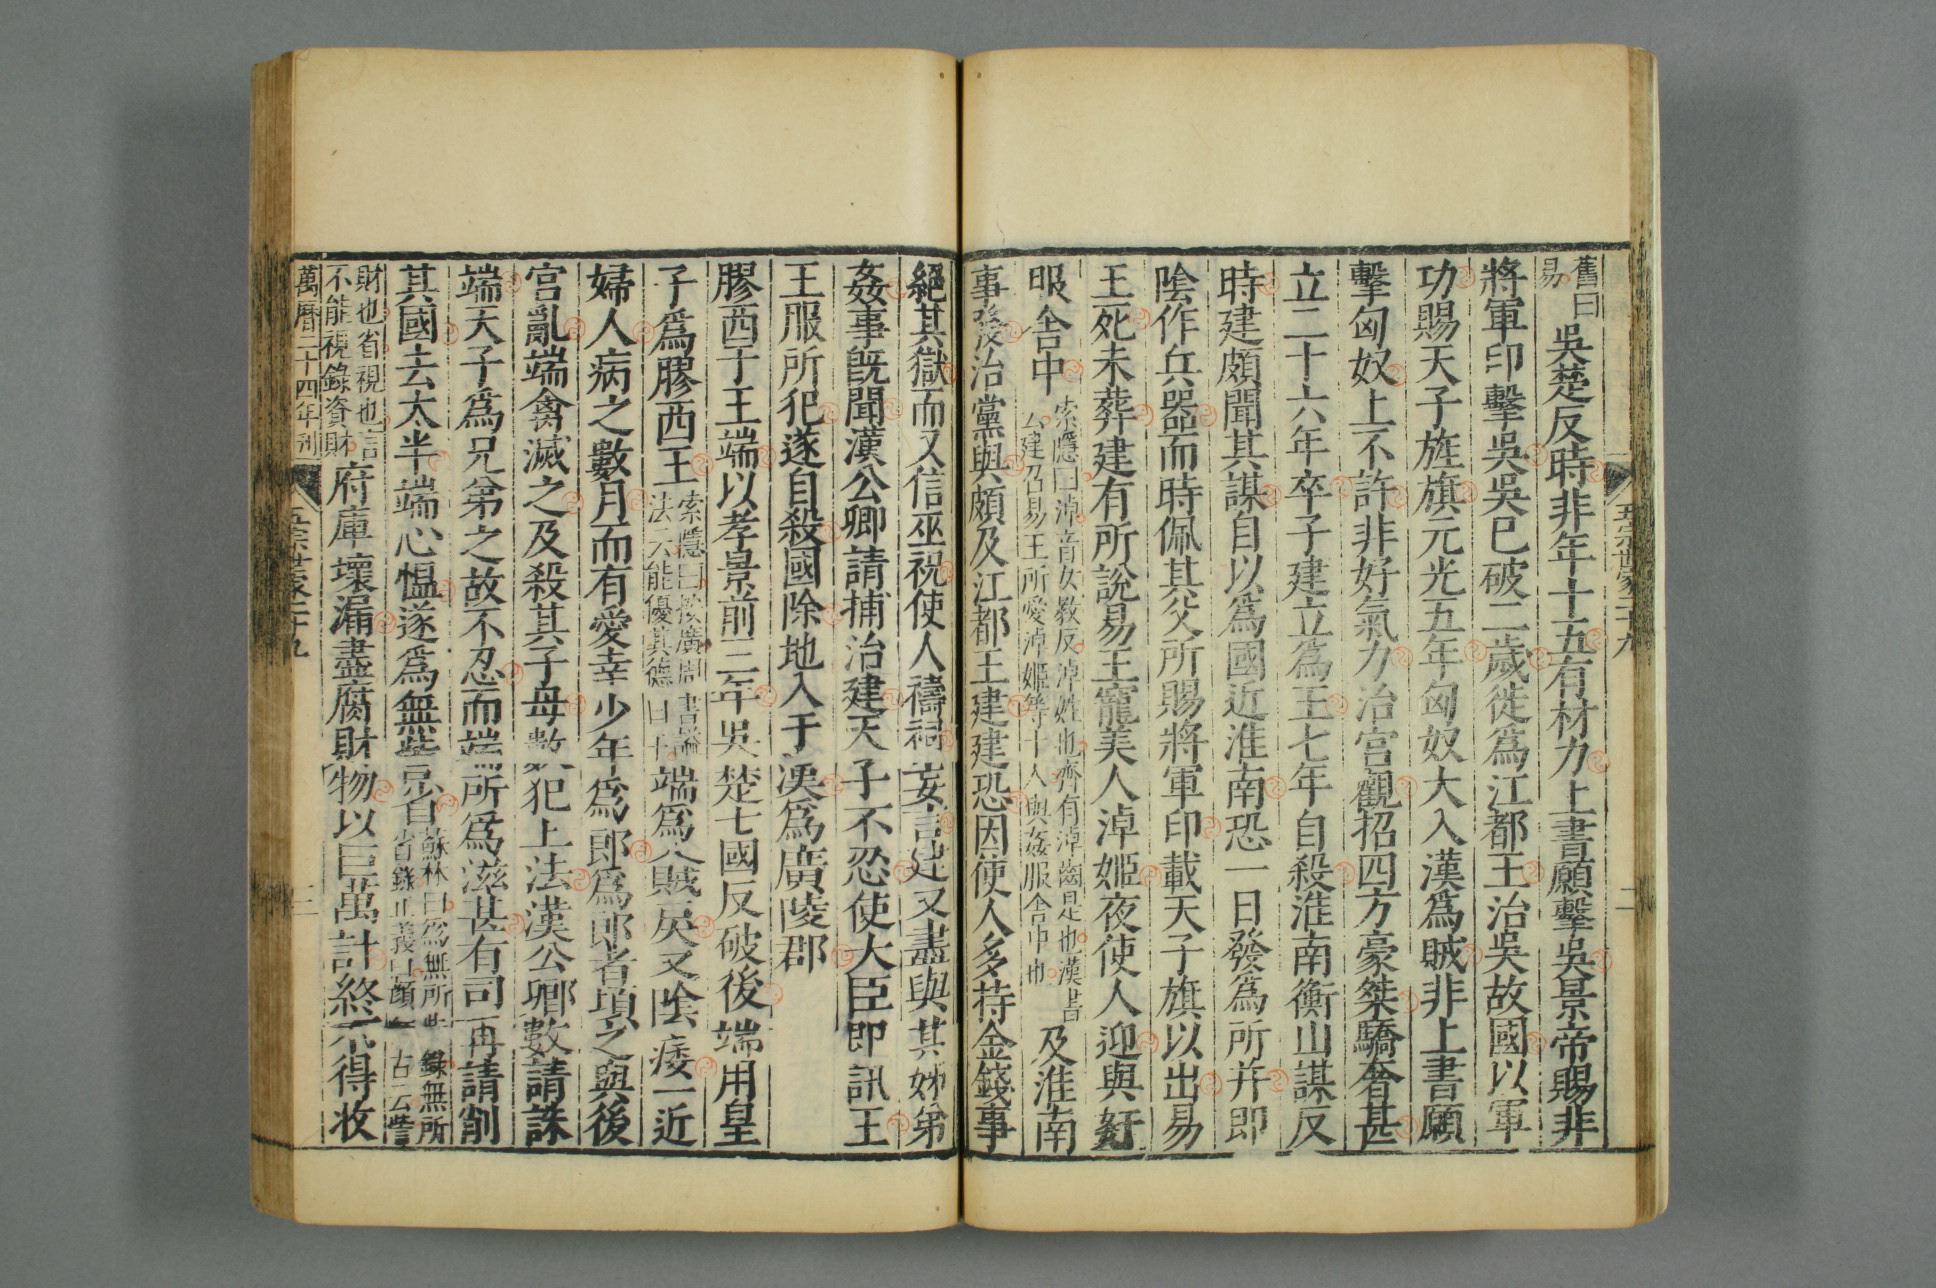 五宗世家二十九
二
舊曰
易
吳楚反時非年十五有材力上書願擊吳景帝賜非
將軍印擊吳吳已破二歲徙爲江都王治吳故國以軍
功賜天子旌旗元光五年匈奴大入漢爲賊非上書願
擊匈奴上不許非好氣力治宮觀招四方豪桀驕奢甚
立二十六年卒子建立爲王七年自殺淮南衡山謀反
時建頗聞其謀自以爲國近淮南恐一日發爲所并即
陰作兵器而時佩其父所賜將軍印載天子旗以出易
王死未葬建有所說易王寵美人淖姬夜使人迎與姧
服舍中
索隱曰淖音女教反淖姓也齊有淖齒是也漢書
云建召易王所愛淖姬等十人與姦服舍中也
及淮南
事發治黨與頗及江都王建建恐因使人多持金錢事
絕其獄而又信巫祝使人禱祠妄言建又盡與其姊弟
姦事旣聞漢公卿請捕治建天子不忍使大臣即訊王
王服所犯遂自殺國除地入于漢爲廣陵郡
膠西于王端以孝景前三年吳楚七國反破後端用皇
子爲膠西王
索隱曰按廣周書謚
法云能優其德曰于
端爲人賊戾又陰痿一近
婦人病之數月而有愛幸少年爲郎爲郎者頃之與後
宮亂端禽滅之及殺其子母數犯上法漢公卿數請誅
端天子爲兄弟之故不忍而端所爲滋甚有司再請削
其國去太半端心慍遂爲無訾省
蘇林曰爲無所訾錄無所
省錄正義曰顏師古云訾
財也省視也言
不能視錄資財
府庫壞漏盡腐財物以巨萬計終不得收
萬曆二十四年刊
五宗世家二十九
二